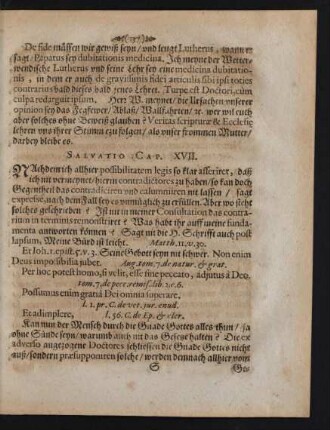 De fide müssen wir gewiß seyn / und leugt Lutherus, wann er
sagt / Papatus sey dubitationis medicina. Ich meyne der Wetter-
wendische Lutherus und seine Lehr sey eine medicina dubitatio-
nis, in dem er auch de gravissimis fidei articulis sibi ipsi toties
contrarius bald dieses bald jenes Lehret. Turpe est Doctori, cum
culpa redarguit ipsum. Herr W. meynet / die Ursachen unserer
opinion sey das Fegfewer / Ablaß / Wallfahrten / rc. wer wil euch
aber solches ohne Beweiß glauben? Veritas Scripturæ & Ecclesiæ
lehren uns ihrer Stimm zu folgen / als unser frommen Mutter /
darbey bleibe es.
SALVATIO CAP. XVII.
NAchdem ich allhier possibilitatem legis so klar asserirt, daß
ich nit vermeynet / hierin contradictores zu haben / so kan doch
Gegentheil das contradiciren und calumniiren nit lassen / sagt
expresse, nach dem Fall sey es vnmüglich zu erfüllen. Aber wo stehet
solches geschrieben? Ist nit in meiner Consultation das contra-
rium in terminis remonstriret? Was habt ihr auff meine funda-
menta antworten können? Sagt nit die H. Schrifft auch post
lapsum, Meine Bürd ist leicht. Matth. 11. v. 30.
Et Joh. 1. epist. 5. v. 3. Seine Gebott seyn nit schwer. Non enim
Deus impossibilia jubet. Aug. tom. 7. de natur. & grat.
Per hoc potest homo, si velit, esse sine peccato, adjutus à Deo.
tom. 7. de pecc. remiss. lib. 2. c. 6.
Possumus enim gratiâ Dei omnia operare.
l. 1. pr. C. de vet. jur. enucl.
Et adimplere, l. 36. C. de Ep. & cler.
Kan nun der Mensch durch die Gnade Gottes alles thun / ja
ohne Sünde seyn / warumb auch nit das Gesetz halten? Die ex
adverso angezogene Doctores schliessen die Gnade Gottes nicht
auß / sondern præsupponiren solche / werden demnach allhier vom
S Ge-